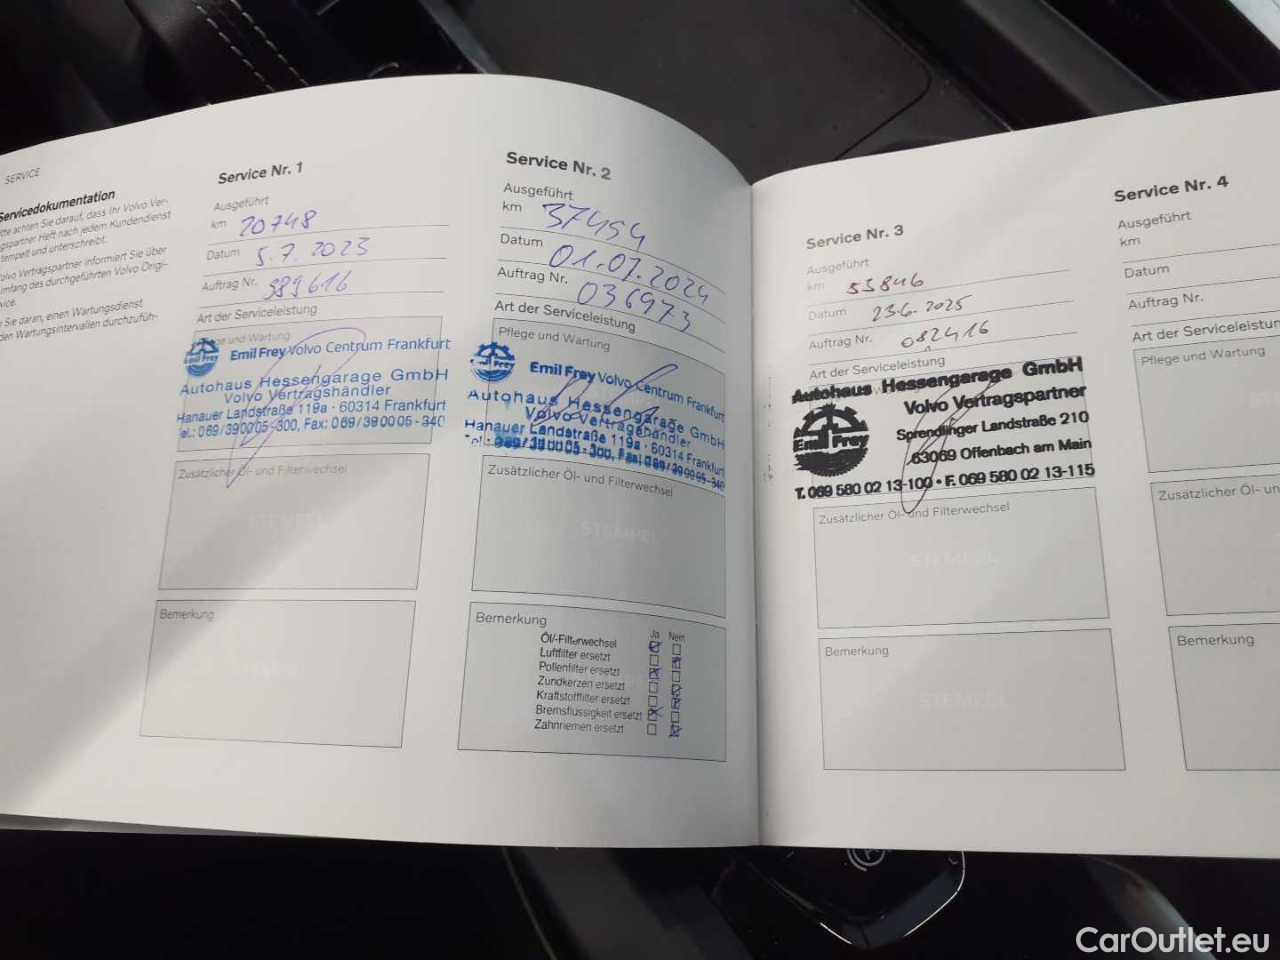 SERVICE
Servicedokumentation
achten Sie darauf, dass Ihr Volvo Ver-
Heft nach jedem Kundendienst
und unterschreibt.
Vertragspartner informiert Sie über
des durchgeführten Volvo Origi-
Sie daran, einen Wartungsdienst
den Wartungsintervallen durchzufüh-
Service Nr. 1
Ausgeführt
km 20748
Datum 5.7.2023
Auftrag Nr. 389616
Art der Serviceleistung
Pflege und Wartung
Emil Frey
Emil Frey Volvo Centrum Frankfurt
Autohaus Hessengarage GmbH
Volvo Vertragshändler
Hanauer Landstraße 119a · 60314 Frankfurt
Tel.: 069/390005-300, Fax: 069/390005-340
Zusätzlicher Öl- und Filterwechsel
STEMPEL
Bemerkung
Service Nr. 2
Ausgeführt
km 37454
Datum 01.07.2024
Auftrag Nr. 036973
Art der Serviceleistung
Pflege und Wartung
Emil Frey
Emil Frey Volvo Centrum Frankfurt
Autohaus Hessengarage GmbH
Volvo Vertragshändler
Hanauer Landstraße 119a · 60314 Frankfurt
Tel.: 069/390005-300, Fax: 069/390005-340
Zusätzlicher Öl- und Filterwechsel
STEMPEL
Bemerkung
Ja Nein
Öl/-Filterwechsel
Luftfilter ersetzt
Pollenfilter ersetzt
Zundkerzen ersetzt
Kraftstofffilter ersetzt
Bremsflüssigkeit ersetzt
Zahnriemen ersetzt
Service Nr. 3
Ausgeführt
km 53846
Datum 23.6.2025
Auftrag Nr. 082416
Art der Serviceleistung
Autohaus Hessengarage GmbH
Volvo Vertragspartner
Emil Frey
Sprendlinger Landstraße 210
63069 Offenbach am Main
T. 069 580 02 13-100 • F. 069 580 02 13-115
Zusätzlicher Öl- und Filterwechsel
STEMPEL
Bemerkung
STEMPEL
Service Nr. 4
Ausgeführt
km
Datum
Auftrag Nr.
Art der Serviceleistun
Pflege und Wartung
Zusätzlicher Öl- un
Bemerkung
CarOutlet.eu